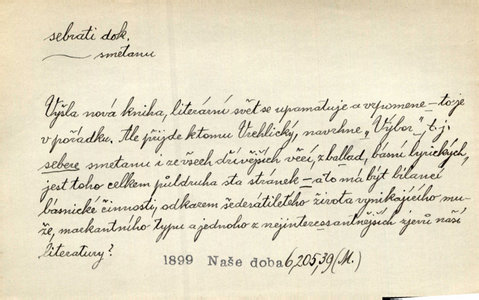 sebrati dok.
smetanu
Vyšla nová kniha, literární svět se upamatuje a vzpomene – to je
v pořádku. Ale přijde k tomu Vrchlický, navrhne „Výbor“, t. j.
sebere smetanu i ze všech dřívějších věcí, z ballad, básní lyrických,
jest toho celkem půldruha sta stránek – a to má být bilancí
básnické činnosti, odkazem šedesátiletého života vynikajícího mu-
že, markantního typu a jednoho z nejinteressantnějších zjevů naší
literatury?
1899 Naše doba 6,205,39 (M.)